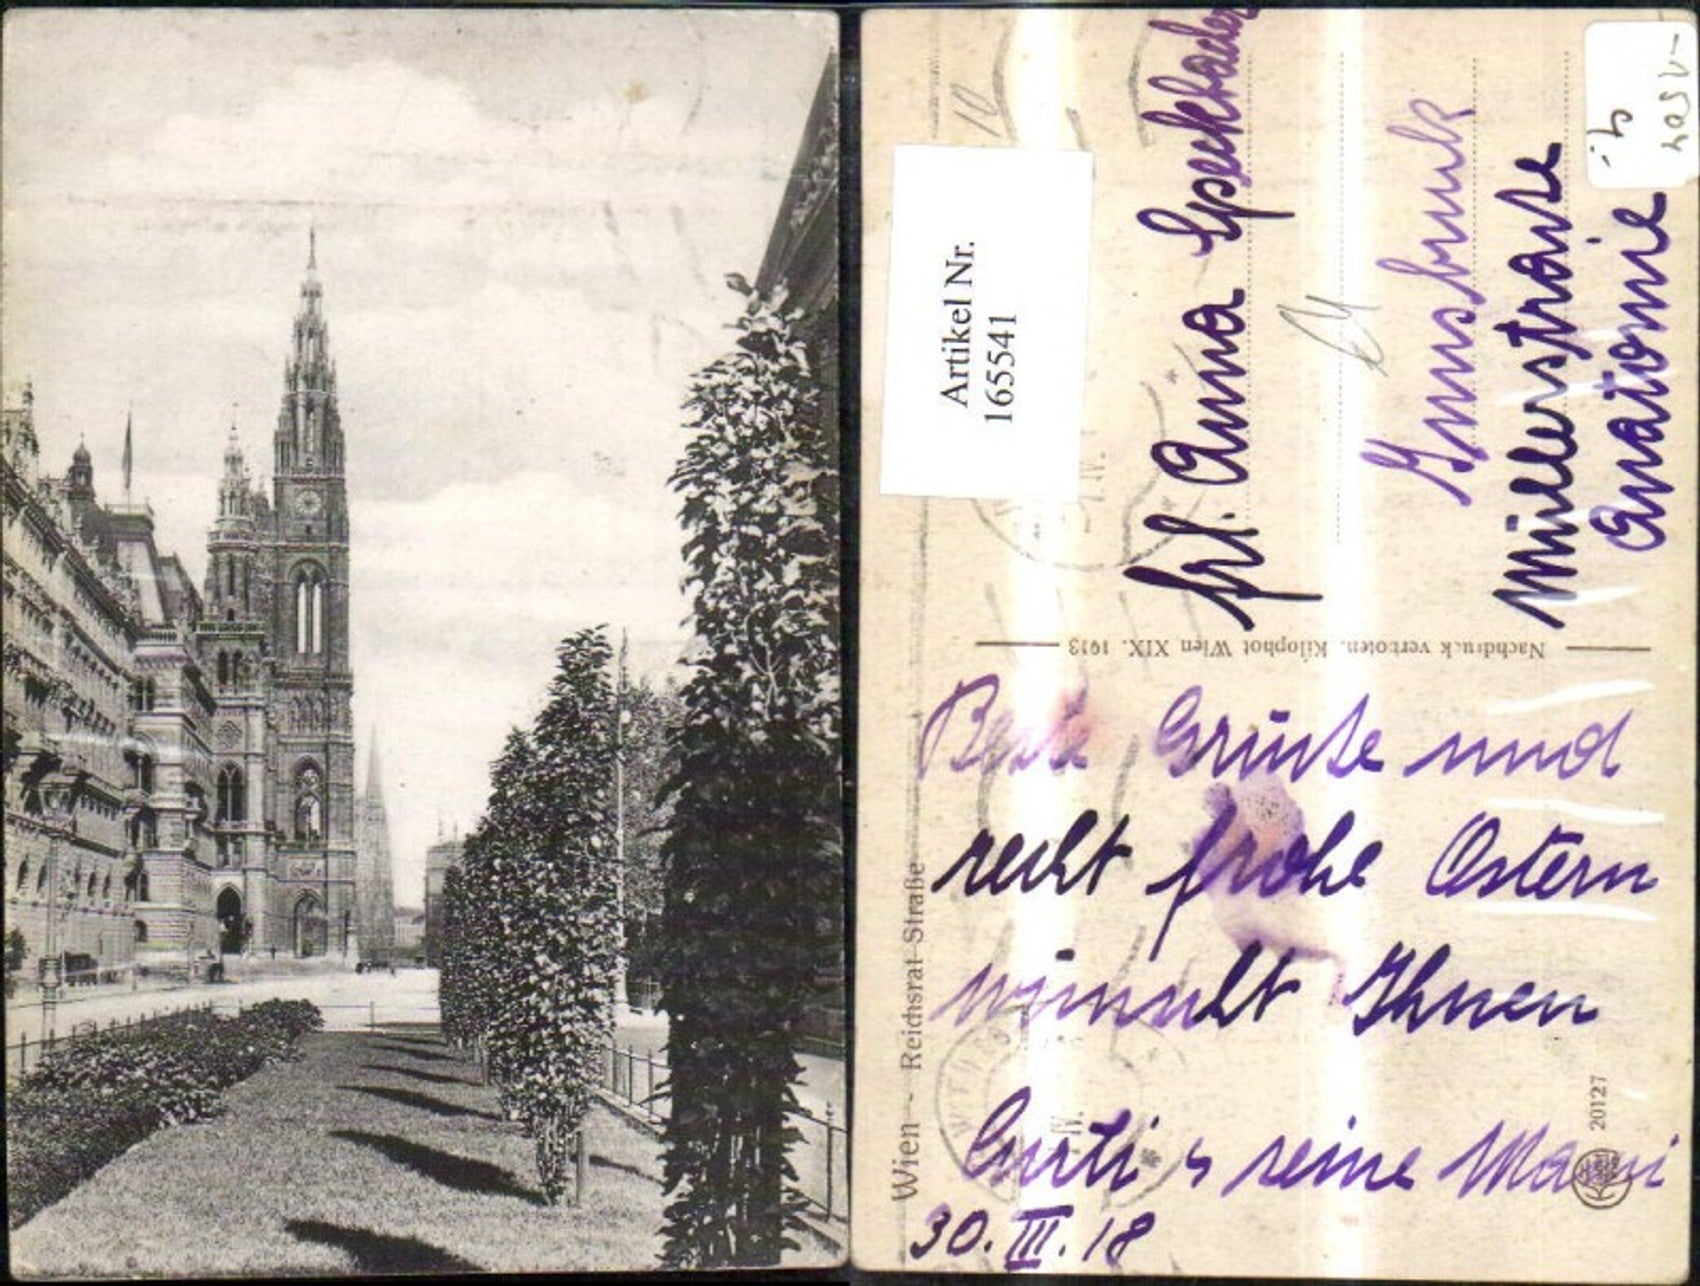 Artikel Nr.
165541
frl. Anna Speckbader
Innsbruck
Müllerstraße
Anatomie
Nachdruck verboten. Kilophot Wien XIX. 1913
Beste Grüße und
recht frohe Ostern
wünscht Ihnen
Curti & seine Mami
30. III. 18
Wien - Reichsrat-Straße
20127
10